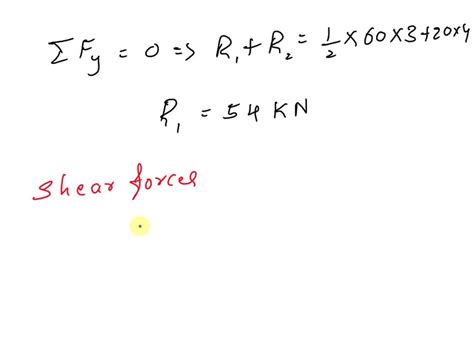 ΣF_y = 0 => R₁ + R₂ = 1/2 × 60 × 3 + 20 × 4
R₁ = 54 KN
Shear forces